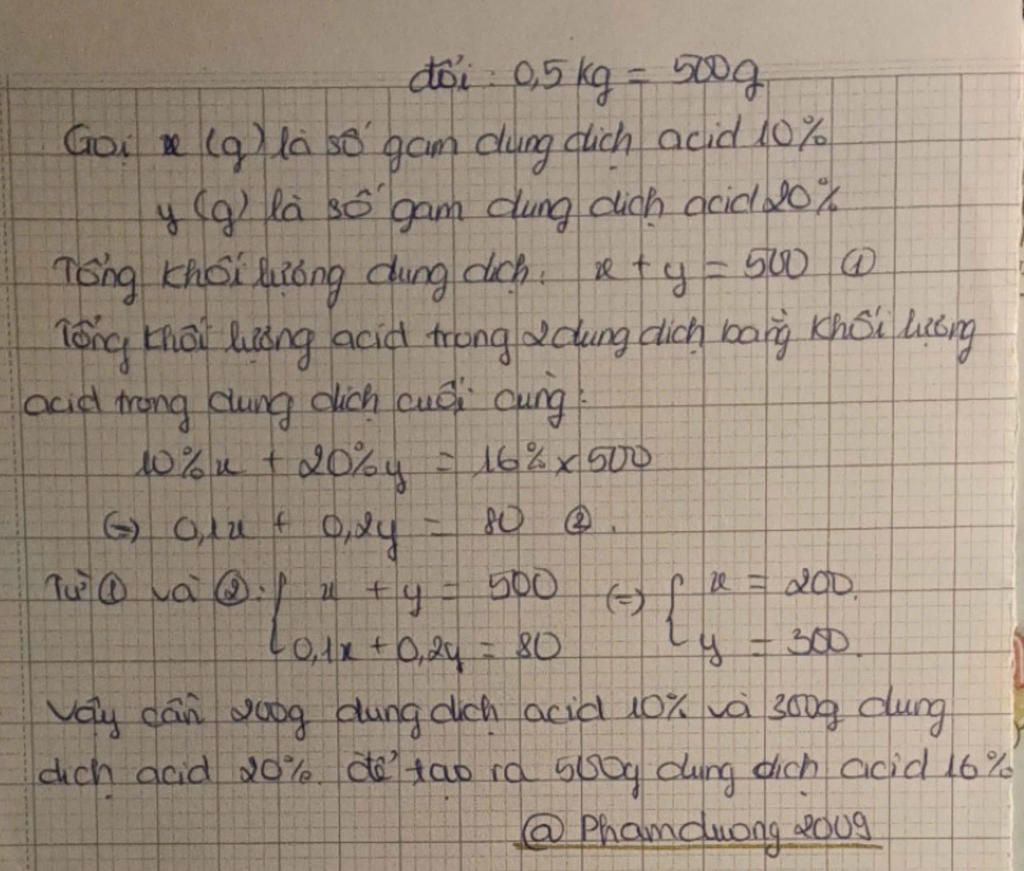 đổi : 0,5 kg = 500g
Gọi x (g) là số gam dung dịch acid 10%
y (g) là số gam dung dịch acid 20%
Tổng khối lượng dung dịch: x + y = 500 ①
Tổng khối lượng acid trong 2 dung dịch bằng khối lượng
acid trong dung dịch cuối cùng :
10%x + 20%y = 16% x 500
(=) 0,1x + 0,2y = 80 ② .
Từ ① và ② : { x + y = 500 (=) { x = 200.
0,1x + 0,2y = 80 y = 300.
Vậy cần 200g dung dịch acid 10% và 300g dung
dịch acid 20% để tạo ra 500g dung dịch acid 16%
@ Phamduong 2009